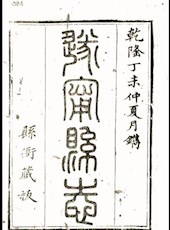 乾隆丁未仲夏月鐫
遂甯縣志
縣衙藏板